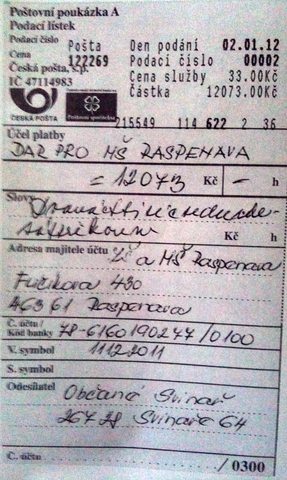 Poštovní poukázka A
Podací lístek
Podací číslo Pošta Den podání 02.01.12
Cena 122269 Podací číslo 00002
Česká pošta, s.p. Cena služby 33.00Kč
IČ 47114983 Částka 12073.00Kč
215549 114 622 2 36
ČESKÁ POŠTA Poštovní spořitelna
Účel platby
DAR PRO MŠ RASPENAVA
= 12073 Kč — h
Slovy Dvanácttisícsedmde-
sáttřikorun Kč h
Adresa majitele účtu ZŠ a MŠ Raspenava
Fučíkova 430
46361 Raspenava
Č. účtu /
Kód banky 78-6160190277/0100
V. symbol 11122011
S. symbol
Odesílatel Občané Svinař
267 28 Svinaře 64
Č. účtu / 0300